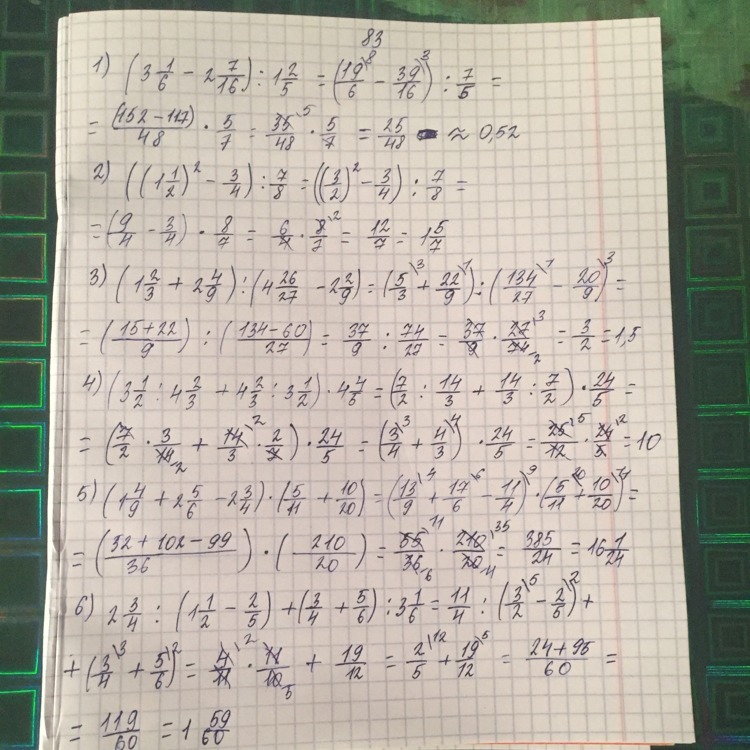 83
1) (3 1/6 - 2 7/16) : 1 2/5 = (19/6 \8 - 39/16 \3) : 7/5 =
= (152 - 117)/48 · 5/7 = 35/48 \5 · 5/7 = 25/48 ≈ 0,52
2) ((1 1/2)² - 3/4) : 7/8 = ((3/2)² - 3/4) : 7/8 =
= (9/4 - 3/4) · 8/7 = 6/4 · 8/7 \2 = 12/7 = 1 5/7
3) (1 2/3 + 2 4/9) : (4 26/27 - 2 2/9) = (5/3 \3 + 22/9 \1) : (134/27 \1 - 20/9 \3) =
= (15+22)/9 : (134-60)/27 = 37/9 : 74/27 = 37/9 · 27/74 \3 2 = 3/2 = 1,5
4) (3 1/2 : 4 2/3 + 4 2/3 : 3 1/2) · 4 4/5 = (7/2 : 14/3 + 14/3 : 7/2) · 24/5 =
= (7/2 · 3/14 2 + 14/3 \2 · 2/7) · 24/5 = (3/4 \3 + 4/3 \4) · 24/5 = 25/12 \5 · 24/5 \2 = 10
5) (1 4/9 + 2 5/6 - 2 3/4) · (5/11 + 10/20) = (13/9 \4 + 17/6 \6 - 11/4 \9) · (5/11 \20 + 10/20 \11) =
= (32 + 102 - 99)/36 · (210/20) = 55/36 \11 6 · 210/20 \35 4 = 385/24 = 16 1/24
6) 2 3/4 : (1 1/2 - 2/5) + (3/4 + 5/6) : 3 1/6 = 11/4 : (3/2 \5 - 2/5 \2) +
+ (3/4 \3 + 5/6 \2) = 4/11 \2 · 11/10 5 + 19/12 = 2/5 \12 + 19/12 \5 = (24 + 95)/60 =
= 119/60 = 1 59/60